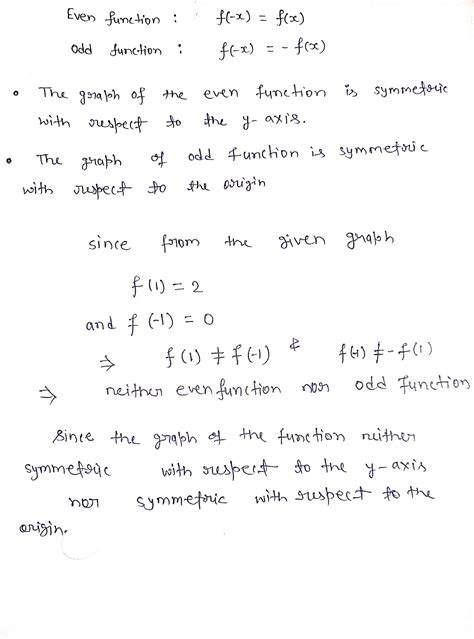 Even function : f(-x) = f(x)
odd function : f(-x) = - f(x)
• The graph of the even function is symmetric
with respect to the y-axis.
• The graph of odd function is symmetric
with respect to the origin
since from the given graph
f(1) = 2
and f(-1) = 0
⇒ f(1) ≠ f(-1) & f(-1) ≠ -f(1)
⇒ neither even function nor odd function
Since the graph of the function neither
symmetric with respect to the y-axis
nor symmetric with respect to the
origin.